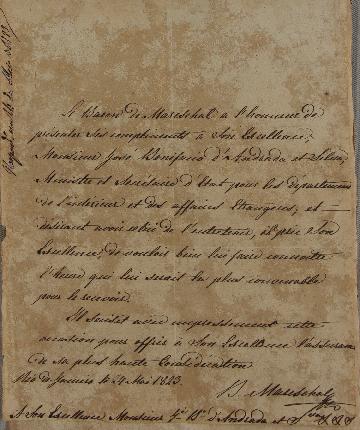 Le Baron de Mareschal a l'honneur de
présenter ses complimens à Son Excellence,
Monsieur José Bonifacio d'Andrada et Silva,
Ministre et Sécrétaire d'Etat pour les départemens
de l'intérieur et des affaires Etrangères, et
désirant avoir celui de l'entretenir, il prie Son
Excellence de vouloir bien lui faire connoitre
l'heure qui lui serait la plus convenable
pour le recevoir.
Il saisit avec empressement cette
occasion pour offrir à Son Excellence l'assurance
de sa plus haute Considération
Rio de Janeiro le 4 Mai 1823.
B. Mareschal
A Son Excellence Monsieur J. B. d'Andrada et S